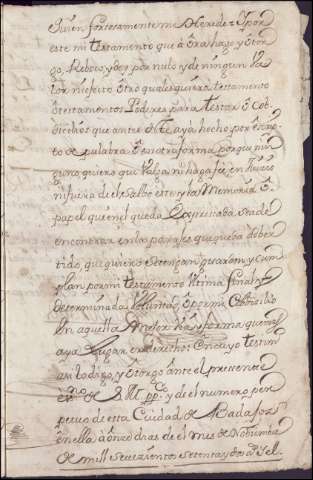 quien fortcetamente mi Heridero y por
este mi testamento que aôra hago y ôtor-
go, Reboco, y doy por nulo y de ningun va
lor ni efecto ôtro qualesquiera testamento
ô testamentos Poderes para testar ô Cob-
dicilios que antes de este, aya hecho por escrip-
to de palabra ô en otra forma, porque nin
guno, quiero que valga ni haga fee en Juicio
ni fuera de el salbo este y la Memoria ô
papel que en el queda Expressada se ade
encontrar en los parajes que queba dober
tido, que quiero se tengan guarden y cum
plan por mi testamento ultima final y
determinada voluntad, ô por mi Cobdicilio
ô en aquella Mejor via y forma que mas
aya Lugar en derecho; En cuyo testim.
asi lo digo, y ôtorgo ante el presente
ess.no de S. M. pp.co y del numero per-
petuo de esta Ciudad de Badajoz
en ella â onze dias de el mes de Nobiembre
de mill setezientos setenta y dos a.s y el